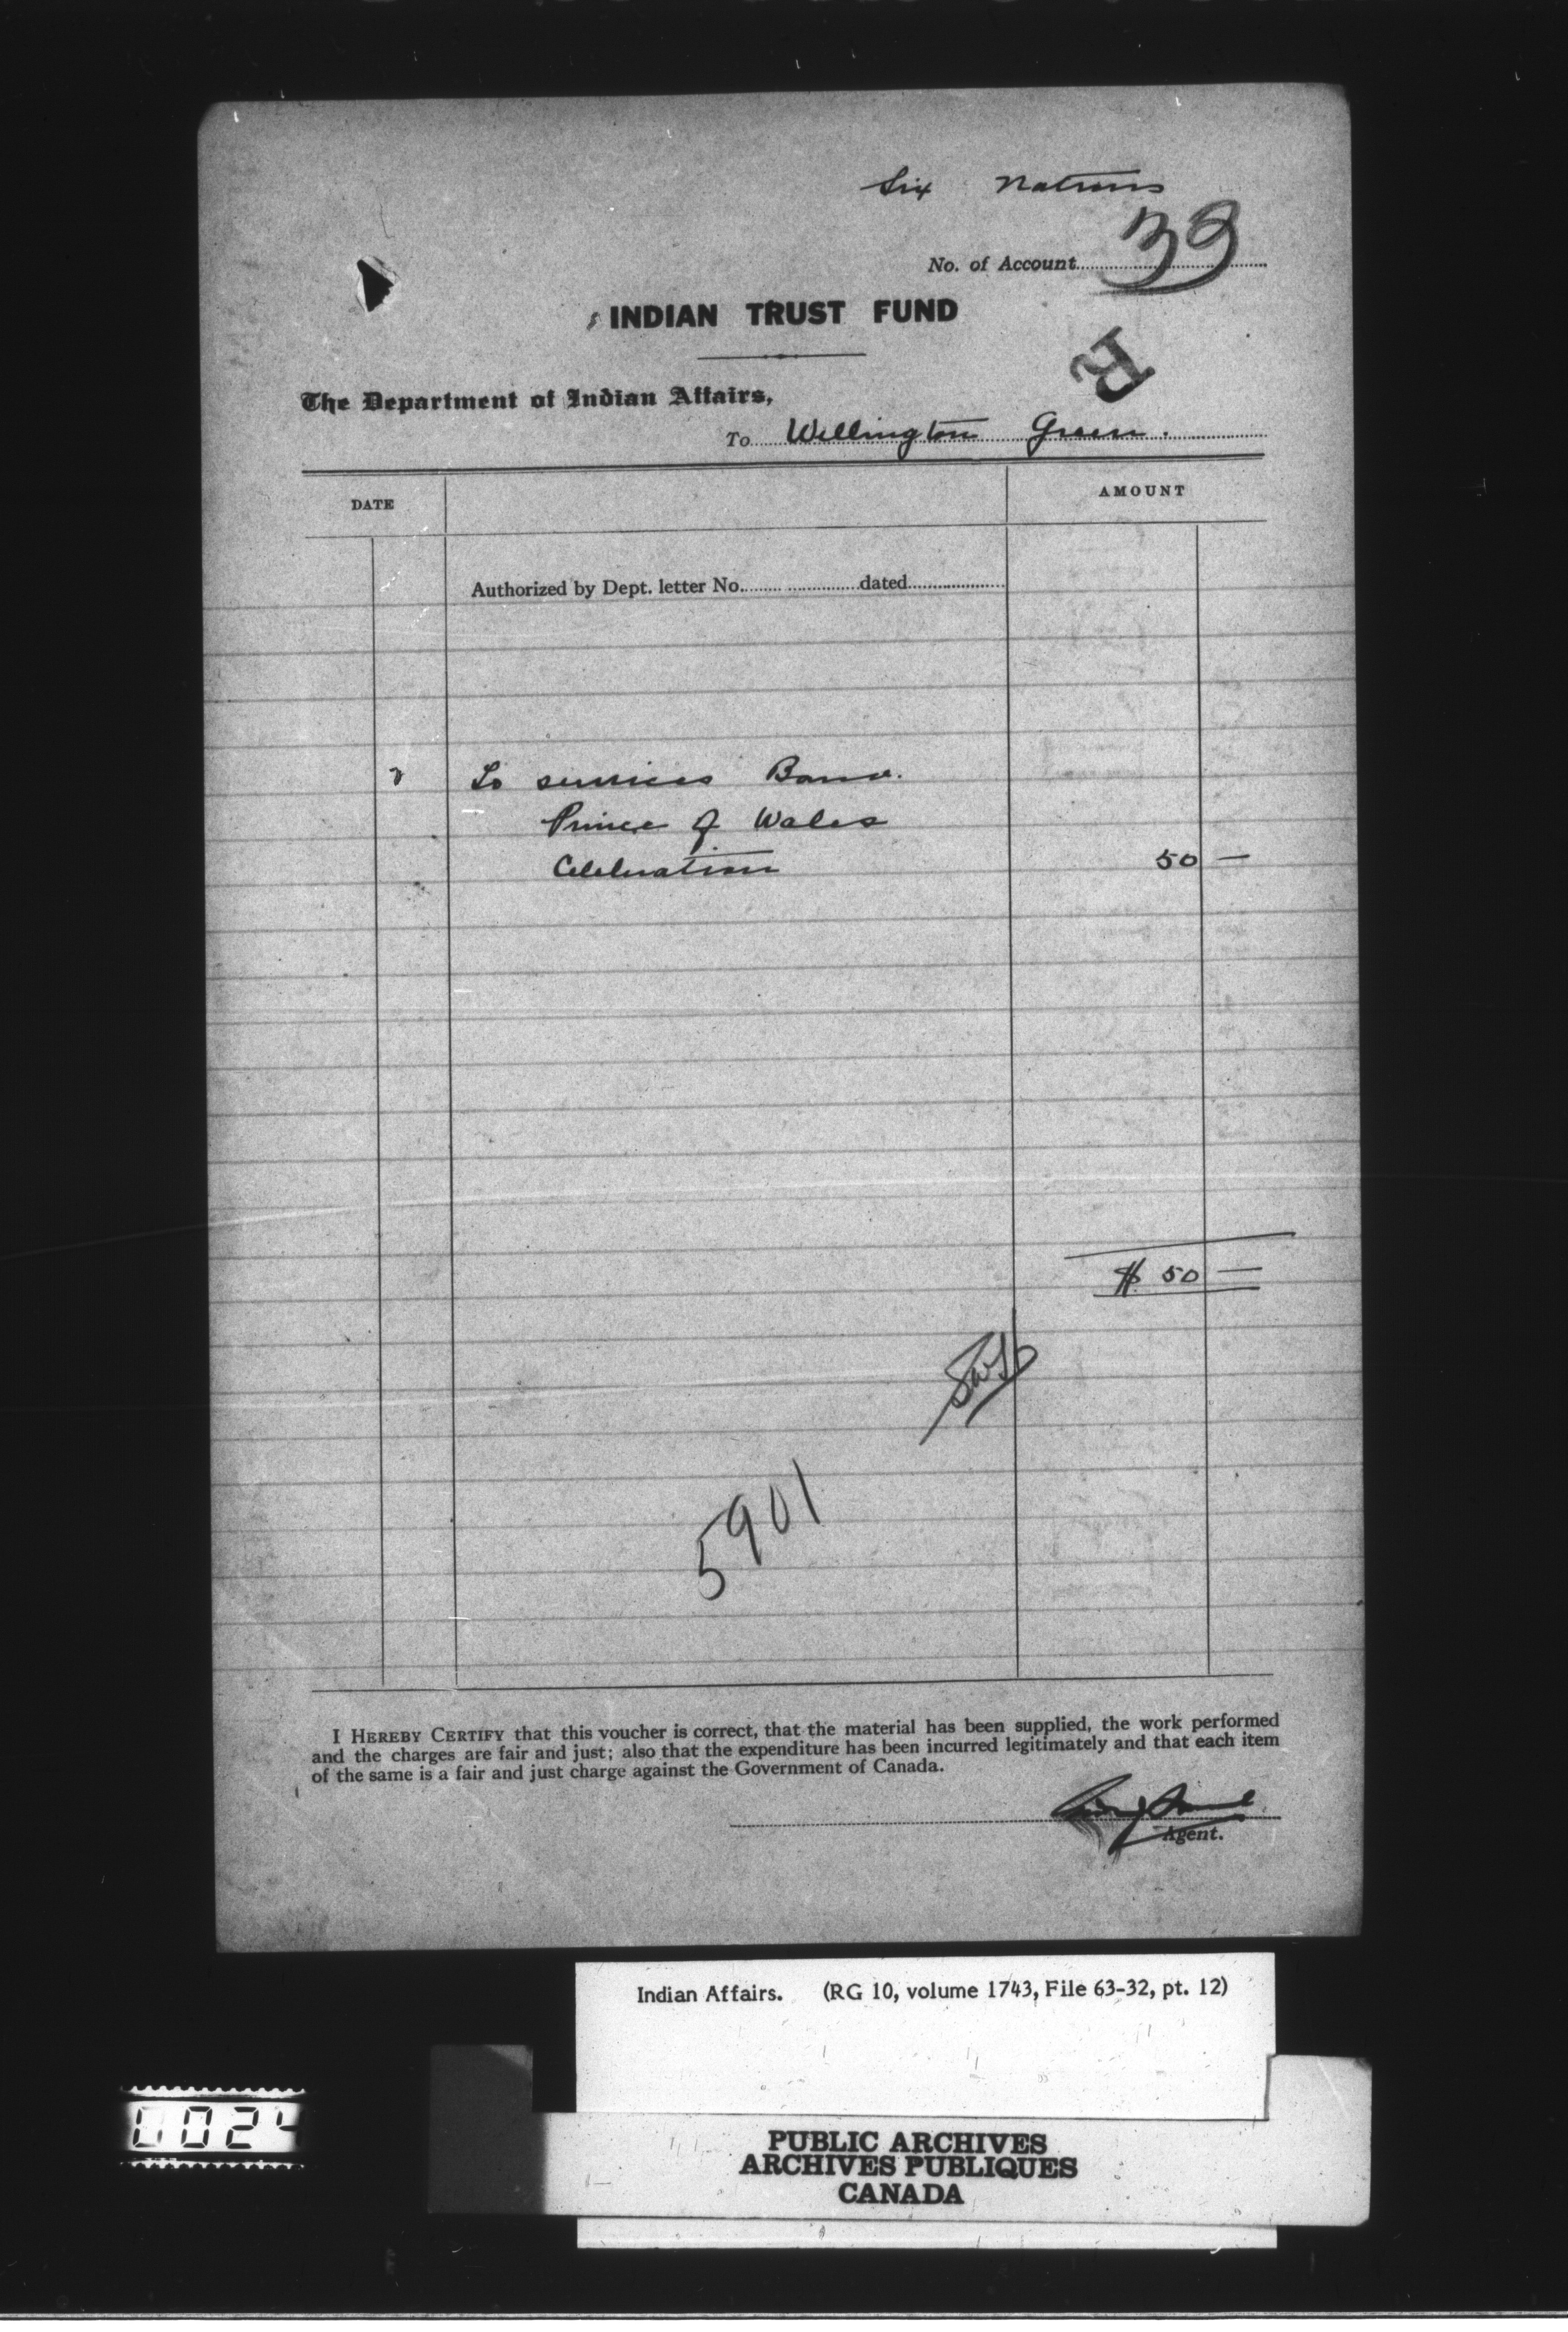 Six Nations
No. of Account 39
INDIAN TRUST FUND
R
The Department of Indian Affairs,
To Wellington Green.
DATE
AMOUNT
Authorized by Dept. letter No. dated
To services Band.
Prince of Wales
Celebration 50 —
$ 50 —
5901
I HEREBY CERTIFY that this voucher is correct, that the material has been supplied, the work performed
and the charges are fair and just; also that the expenditure has been incurred legitimately and that each item
of the same is a fair and just charge against the Government of Canada.
Agent.
Indian Affairs. (RG 10, volume 1743, File 63-32, pt. 12)
0024
PUBLIC ARCHIVES
ARCHIVES PUBLIQUES
CANADA